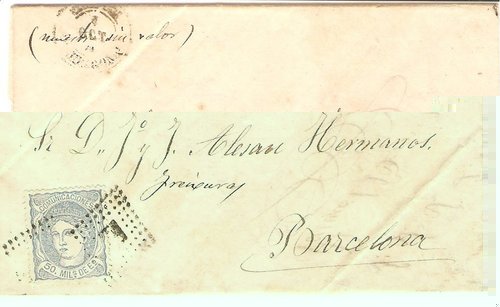 OCT
(muestra sin valor)
Sr D. Jº y J. Alesan Hermanos.
Barcelona
COMUNICACIONES
50 MILS DE Eº